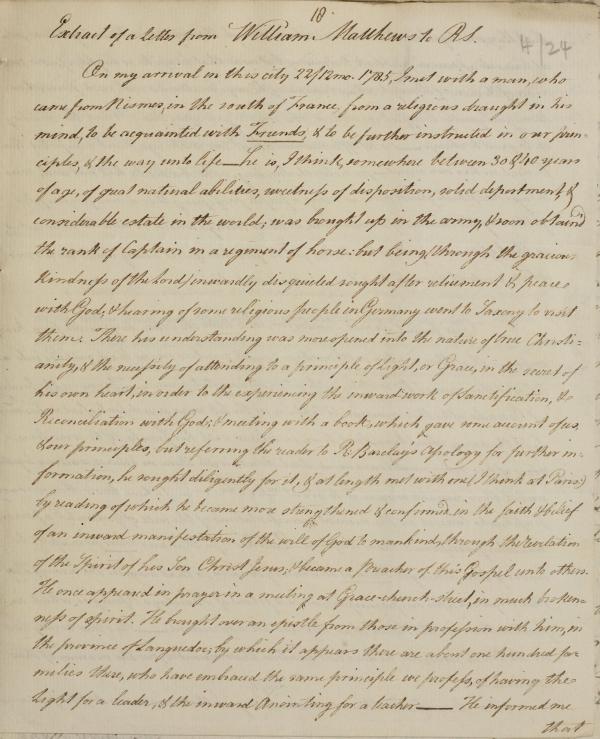 18
Extract of a Letter from William Matthews to R.S.
4/24
On my arrival in this city 22/12mo. 1785, I met with a man, who
came from Nismes, in the south of France, from a religious draught in his
mind, to be acquainted with Friends, & to be further instructed in our prin-
ciples, & the way unto life — he is, I think, somewhere between 30 & 40 years
of age, of great natural abilities, sweetness of disposition, solid deportment, &
considerable estate in the world; was brought up in the army, & soon obtain'd
the rank of Captain in a regiment of horse: but being (through the gracious
kindness of the Lord) inwardly disquieted sought after retirement & peace
with God; & hearing of some religious people in Germany went to Saxony to visit
them. There his understanding was more opened into the nature of true Christi-
anity, & the necessity of attending to a principle of Light, or Grace, in the secret of
his own heart, in order to the experiencing the inward work of Sanctification, &
Reconciliation with God; & meeting with a book, which gave some account of us,
& our principles, but referring the reader to R. Barclay's Apology for further in-
formation, he sought diligently for it, & at length met with one (I think at Paris)
by reading of which he became more strengthened & confirmed in the faith & belief
of an inward manifestation of the will of God to mankind, through the revelation
of the Spirit of his Son Christ Jesus; & became a Preacher of this Gospel unto others.
He once appeared in prayer in a meeting at Grace-church-street, in much broken-
ness of spirit. He brought over an epistle from those in profession with him, in
the province of Languedoc; by which it appears there are about one hundred fa-
milies there, who have embraced the same principle we profess, of having the
Light for a leader, & the inward Anointing for a teacher — He informed me
that